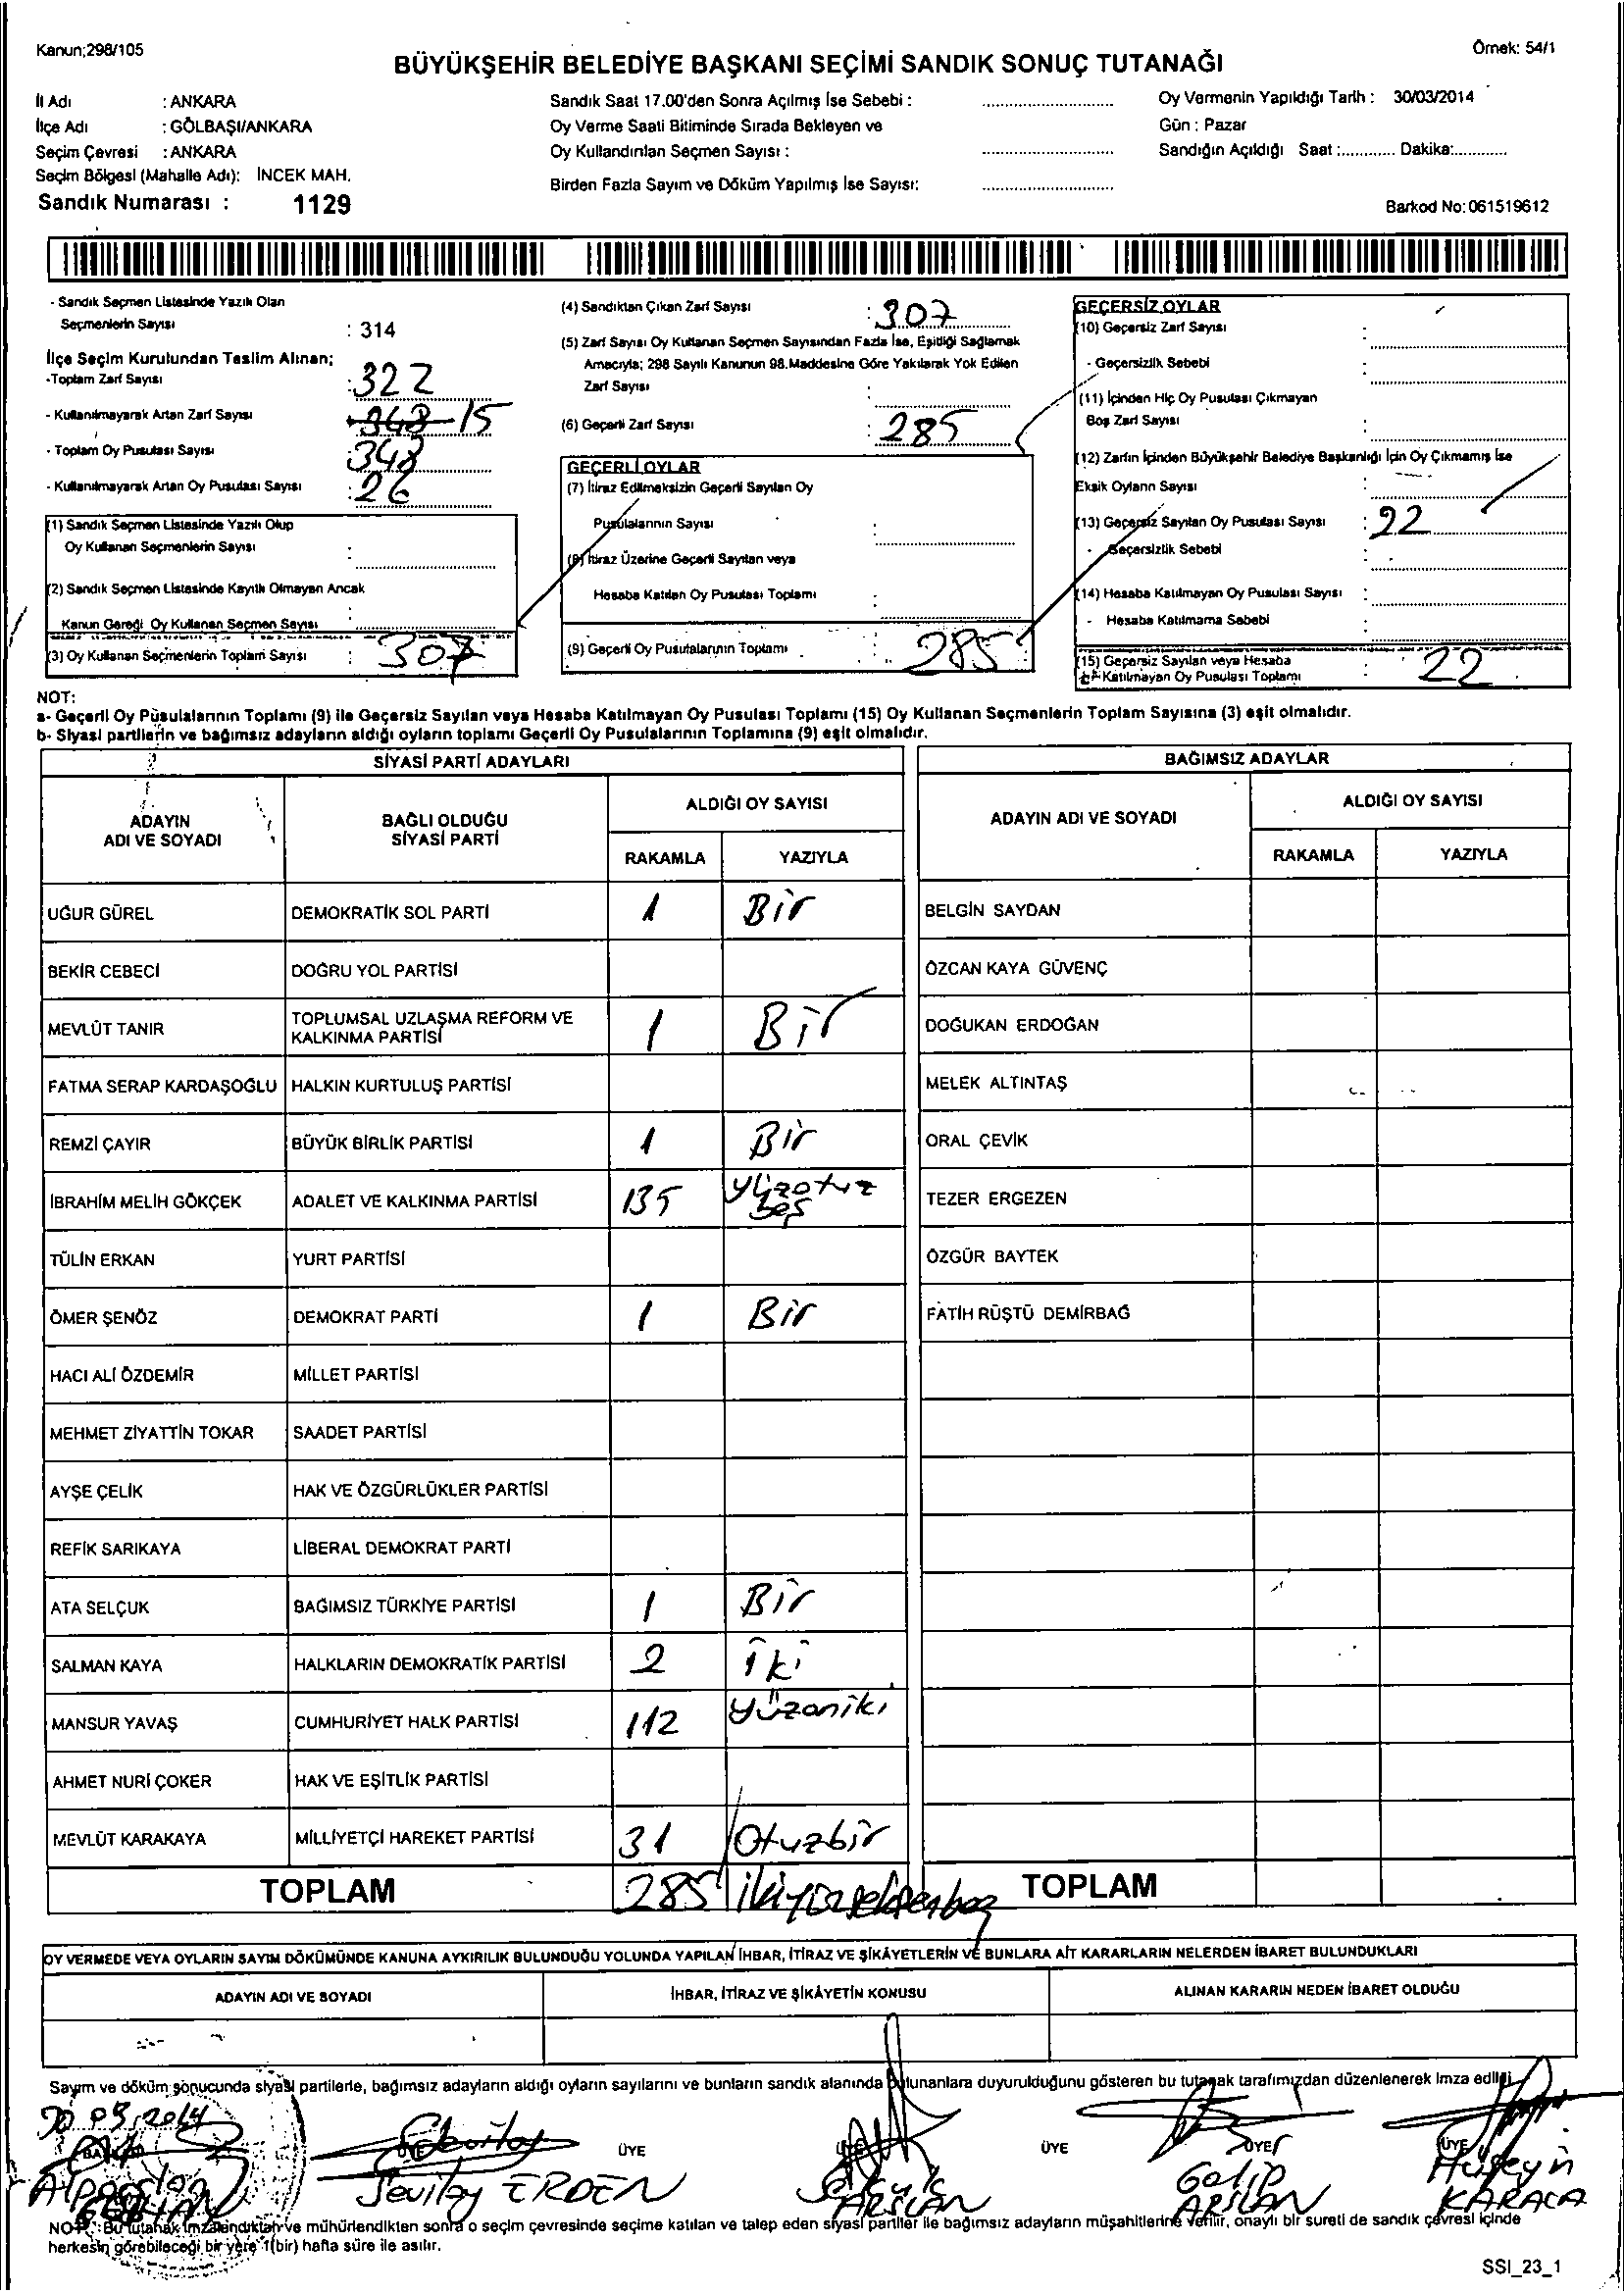 Kanun;298/105
Örnek: 54/1
BÜYÜKŞEHİR BELEDİYE BAŞKANI SEÇİMİ SANDIK SONUÇ TUTANAĞI
İl Adı : ANKARA
İlçe Adı : GÖLBAŞI/ANKARA
Seçim Çevresi : ANKARA
Seçim Bölgesi (Mahalle Adı): İNCEK MAH.
Sandık Numarası : 1129
Sandık Saat 17.00'den Sonra Açılmış İse Sebebi :
Oy Verme Saati Bitiminde Sırada Bekleyen ve
Oy Kullandırılan Seçmen Sayısı :
Birden Fazla Sayım ve Döküm Yapılmış İse Sayısı:
Oy Vermenin Yapıldığı Tarih : 30/03/2014
Gün : Pazar
Sandığın Açıldığı Saat :............ Dakika:............
Barkod No:061519612
- Sandık Seçmen Listesinde Yazılı Olan
Seçmenlerin Sayısı : 314
İlçe Seçim Kurulundan Teslim Alınan;
-Toplam Zarf Sayısı : 322
- Kullanılmayarak Artan Zarf Sayısı : 348 15
- Toplam Oy Pusulası Sayısı 348
- Kullanılmayarak Artan Oy Pusulası Sayısı : 26
(1) Sandık Seçmen Listesinde Yazılı Olup
Oy Kullanan Seçmenlerin Sayısı :
(2) Sandık Seçmen Listesinde Kayıtlı Olmayan Ancak
Kanun Gereği Oy Kullanan Seçmen Sayısı :
(3) Oy Kullanan Seçmenlerin Toplam Sayısı : 307
(4) Sandıktan Çıkan Zarf Sayısı : 307
(5) Zarf Sayısı Oy Kullanan Seçmen Sayısından Fazla İse, Eşitliği Sağlamak
Amacıyla; 298 Sayılı Kanunun 98.Maddesine Göre Yakılarak Yok Edilen
Zarf Sayısı :
(6) Geçerli Zarf Sayısı : 285
GEÇERLİ OYLAR
(7) İtiraz Edilmeksizin Geçerli Sayılan Oy
Pusulalarının Sayısı :
(8) İtiraz Üzerine Geçerli Sayılan veya
Hesaba Katılan Oy Pusulası Toplamı :
(9) Geçerli Oy Pusulalarının Toplamı : 285
GEÇERSİZ OYLAR
(10) Geçersiz Zarf Sayısı :
- Geçersizlik Sebebi :
(11) İçinden Hiç Oy Pusulası Çıkmayan
Boş Zarf Sayısı :
(12) Zarfın İçinden Büyükşehir Belediye Başkanlığı İçin Oy Çıkmamış İse
Eksik Oyların Sayısı :
(13) Geçersiz Sayılan Oy Pusulası Sayısı : 22
- Geçersizlik Sebebi :
(14) Hesaba Katılmayan Oy Pusulası Sayısı :
- Hesaba Katılmama Sebebi :
(15) Geçersiz Sayılan veya Hesaba
Katılmayan Oy Pusulası Toplamı : 22
NOT:
a- Geçerli Oy Pusulalarının Toplamı (9) ile Geçersiz Sayılan veya Hesaba Katılmayan Oy Pusulası Toplamı (15) Oy Kullanan Seçmenlerin Toplam Sayısına (3) eşit olmalıdır.
b- Siyasi partilerin ve bağımsız adayların aldığı oyların toplamı Geçerli Oy Pusulalarının Toplamına (9) eşit olmalıdır.
SİYASİ PARTİ ADAYLARI
ADAYIN ADI VE SOYADI
BAĞLI OLDUĞU SİYASİ PARTİ
ALDIĞI OY SAYISI
RAKAMLA YAZIYLA
UĞUR GÜREL DEMOKRATİK SOL PARTİ 1 Bir
BEKİR CEBECİ DOĞRU YOL PARTİSİ
MEVLÜT TANIR TOPLUMSAL UZLAŞMA REFORM VE KALKINMA PARTİSİ 1 Bir
FATMA SERAP KARDAŞOĞLU HALKIN KURTULUŞ PARTİSİ
REMZİ ÇAYIR BÜYÜK BİRLİK PARTİSİ 1 Bir
İBRAHİM MELİH GÖKÇEK ADALET VE KALKINMA PARTİSİ 135 yüzotuz beş
TÜLİN ERKAN YURT PARTİSİ
ÖMER ŞENÖZ DEMOKRAT PARTİ 1 Bir
HACI ALİ ÖZDEMİR MİLLET PARTİSİ
MEHMET ZİYATTİN TOKAR SAADET PARTİSİ
AYŞE ÇELİK HAK VE ÖZGÜRLÜKLER PARTİSİ
REFİK SARIKAYA LİBERAL DEMOKRAT PARTİ
ATA SELÇUK BAĞIMSIZ TÜRKİYE PARTİSİ 1 Bir
SALMAN KAYA HALKLARIN DEMOKRATİK PARTİSİ 2 iki
MANSUR YAVAŞ CUMHURİYET HALK PARTİSİ 112 yüzoniki
AHMET NURİ ÇOKER HAK VE EŞİTLİK PARTİSİ
MEVLÜT KARAKAYA MİLLİYETÇİ HAREKET PARTİSİ 31 Otuzbir
TOPLAM 285 ikiyüzseksenbeş
BAĞIMSIZ ADAYLAR
ADAYIN ADI VE SOYADI
ALDIĞI OY SAYISI
RAKAMLA YAZIYLA
BELGİN SAYDAN
ÖZCAN KAYA GÜVENÇ
DOĞUKAN ERDOĞAN
MELEK ALTINTAŞ
ORAL ÇEVİK
TEZER ERGEZEN
ÖZGÜR BAYTEK
FATİH RÜŞTÜ DEMİRBAĞ
TOPLAM
OY VERMEDE VEYA OYLARIN SAYIM DÖKÜMÜNDE KANUNA AYKIRILIK BULUNDUĞU YOLUNDA YAPILAN İHBAR, İTİRAZ VE ŞİKÂYETLERİN VE BUNLARA AİT KARARLARIN NELERDEN İBARET BULUNDUKLARI
ADAYIN ADI VE SOYADI
İHBAR, İTİRAZ VE ŞİKÂYETİN KONUSU
ALINAN KARARIN NEDEN İBARET OLDUĞU
Sayım ve döküm sonucunda siyasi partilerle, bağımsız adayların aldığı oyların sayılarını ve bunların sandık alanında bulunanlara duyurulduğunu gösteren bu tutanak tarafımızdan düzenlenerek imza edildi.
30.03.2014
BAŞKAN ÜYE ÜYE ÜYE ÜYE ÜYE ÜYE
Alpaslan
Sevilay ERDEN
Selçuk ARSLAN
Galip ARSLAN
Hüseyin KARACA
NOT: Bu tutanak imzalandıktan ve mühürlendikten sonra o seçim çevresinde seçime katılan ve talep eden siyasi partiler ile bağımsız adayların müşahitlerine verilir, onaylı bir sureti de sandık çevresi içinde
herkesin görebileceği bir yere 1(bir) hafta süre ile asılır.
SSI_23_1